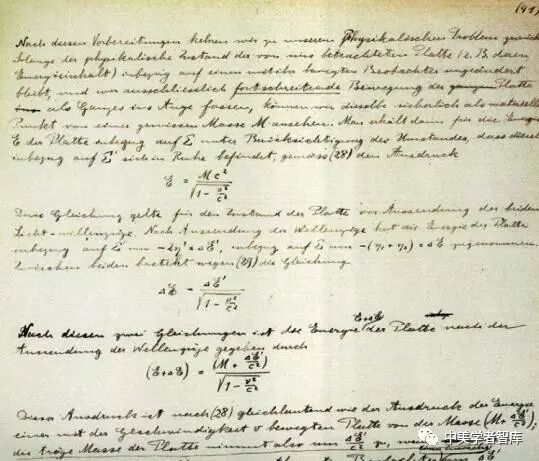 (41)
Nach diesen Vorbereitungen kehren wir zu unserem physikalischen Problem zurück
Solange der physikalische Zustand der von uns betrachteten Platte (z. B. deren
Energieinhalt) inbezug auf einen mit ihr bewegten Beobachter ungeändert
bleibt, und wir ausschliesslich fortschreitende Bewegung der ganzen Platte
als Ganzes ins Auge fassen, können wir dieselbe sicherlich als materiellen
Punkt von einer gewissen Masse M ansehen. Man erhält dann für die Energie
E der Platte inbezug auf Σ unter Berücksichtigung des Umstandes, dass diese
inbezug auf Σ' sich in Ruhe befindet, gemäss (28) den Ausdruck
E = Mc² / √(1 - v²/c²)
Diese Gleichung gelte für den Zustand der Platte vor Aussendung der beiden
Licht-wellenzüge. Nach Aussendung der Wellenzüge hat die Energie der Platte
inbezug auf Σ' um -2η' = ΔE', inbezug auf Σ um -(η₁ + η₂) = ΔE zugenommen.
Zwischen beiden besteht wegen (29) die Gleichung
ΔE = ΔE' / √(1 - v²/c²)
E+ΔE
Nach diesen zwei Gleichungen ist die Energie der Platte nach der
Aussendung der Wellenzüge gegeben durch
(E+ΔE) = (M + ΔE'/c²) / √(1 - v²/c²)
Dieser Ausdruck ist nach (28) gleichlautend wie der Ausdruck der Energie
einer mit der Geschwindigkeit v bewegten Platte von der Masse (M + ΔE'/c²);
die träge Masse der Platte nimmt also um ΔE'/c² zu,
中美学者智库